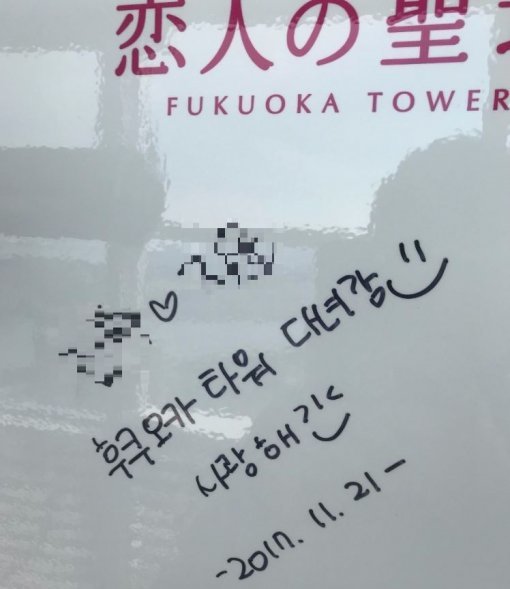 恋人の聖
FUKUOKA TOWER
♡
후쿠오카 타워 다녀감
사랑해
-2017. 11. 21-